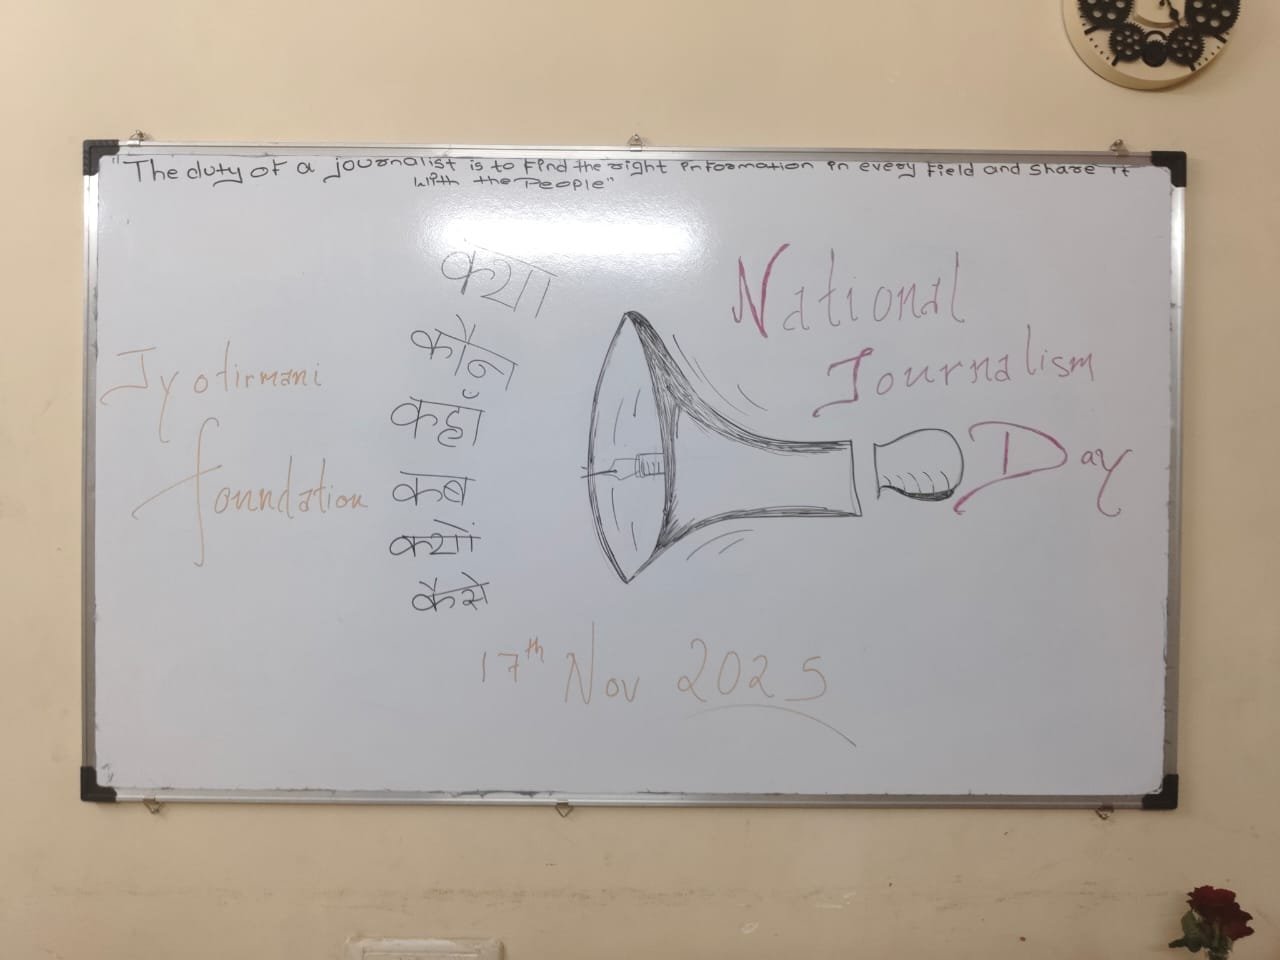 "The duty of a journalist is to find the right information in every field and share it
with the People"
क्या
कौन
कहाँ
कब
क्यों
कैसे
Jyotirmani
foundation
National
Journalism
Day
17th Nov 2025